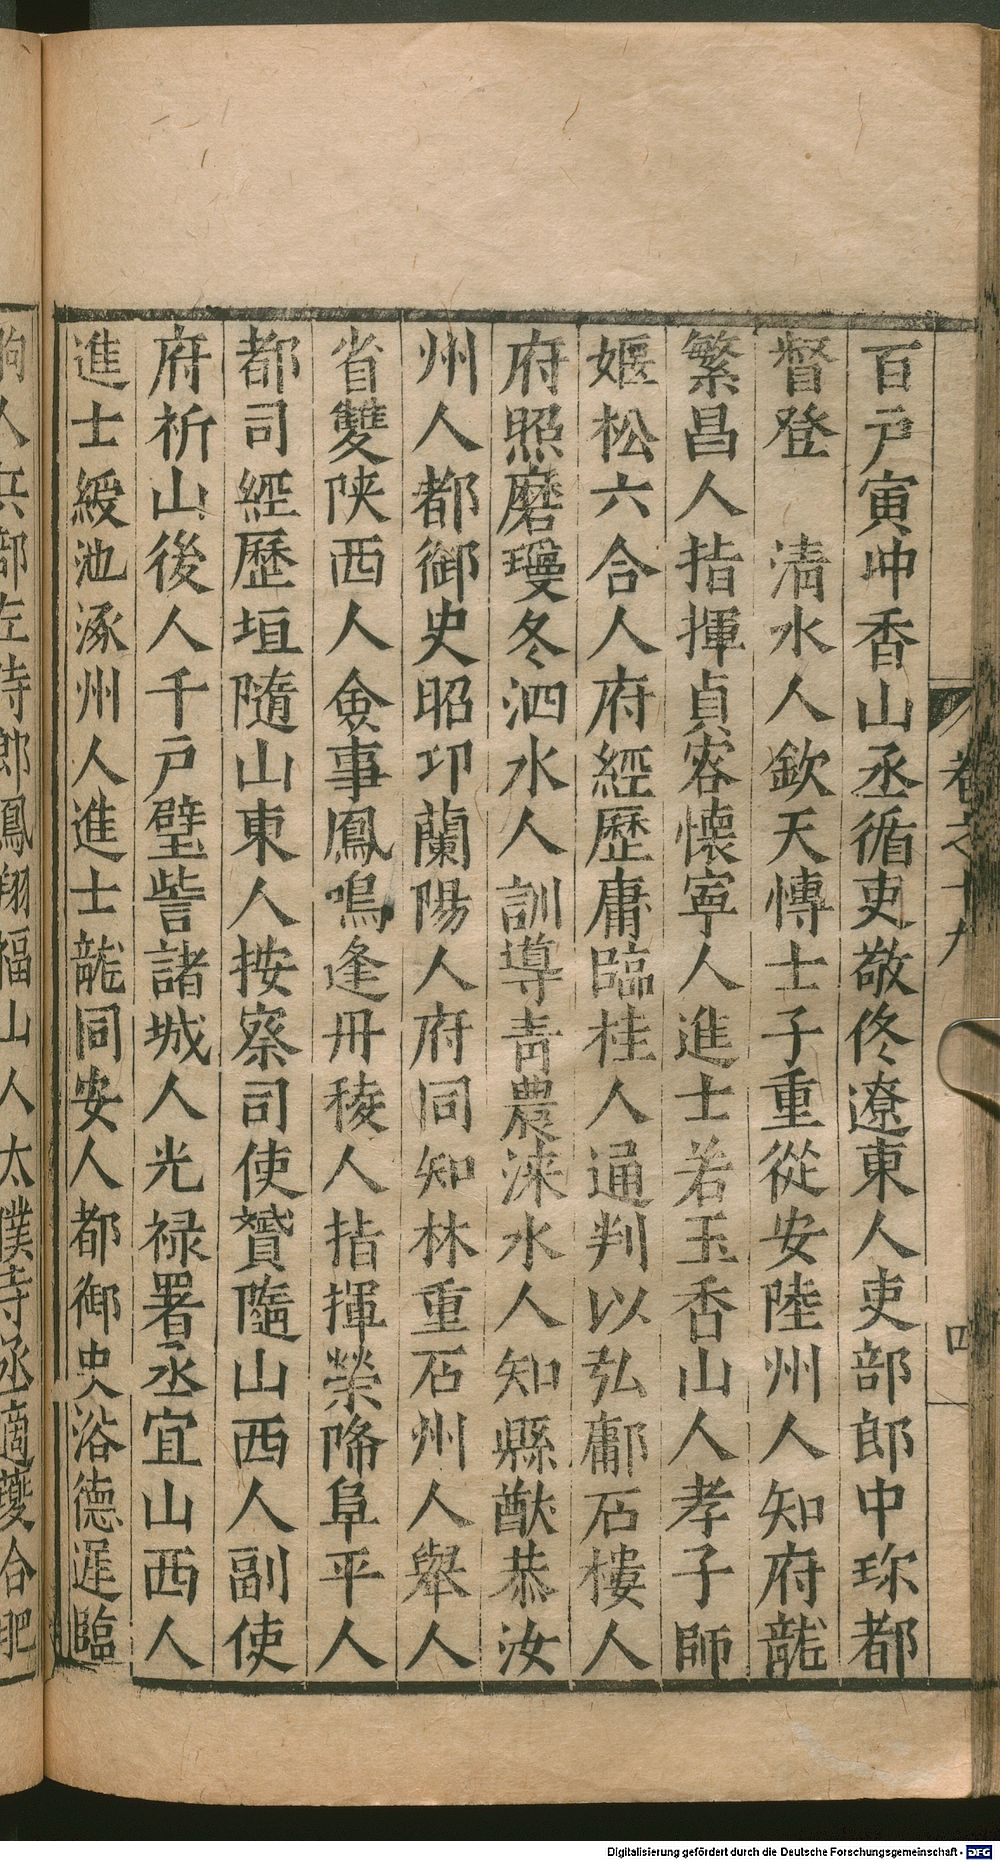 卷之十九
四
百戶寅冲香山丞循吏敬佟遼東人吏部郎中珎都
督登　清水人欽天愽士子重從安陸州人知府龍
繁昌人指揮貞容懷寜人進士若玉香山人孝子師
嫗松六合人府經歷庸臨桂人通判以弘鄘石樓人
府照磨冬泗水人訓導青農淶水人知縣猷恭汝
州人都御史昭卭蘭陽人府同知林重石州人舉人
省雙陜西人僉事鳳鳴逄丹稜人指揮榮啼阜平人
都司經歷垣隨山東人按察司使贇隨山西人副使
府祈山後人千戶璧訾諸城人光禄署丞宜山西人
進士綬池涿州人進士龍同安人都御史浴德遲臨
人兵部左侍郎鳳翔福山人太僕寺丞適夔合肥
Digitalisierung gefördert durch die Deutsche Forschungsgemeinschaft - DFG